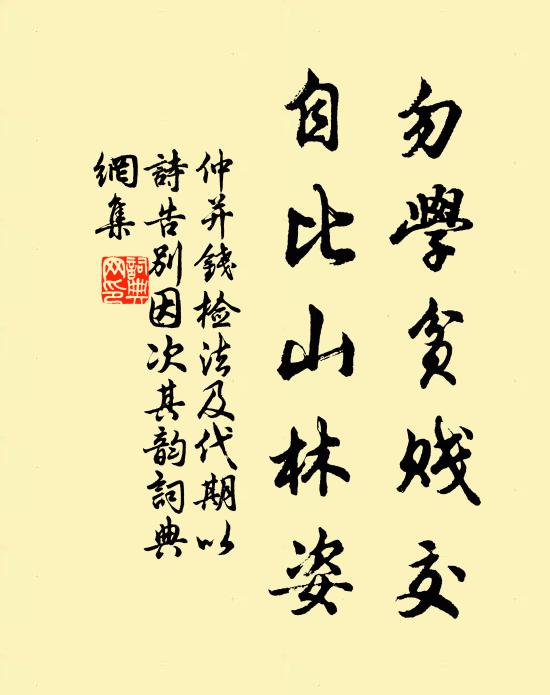 勿學貧賤交
自比山林姿
仲并錢檢法及代期以
詩告別因次其韵詞典
網集
詞典網印